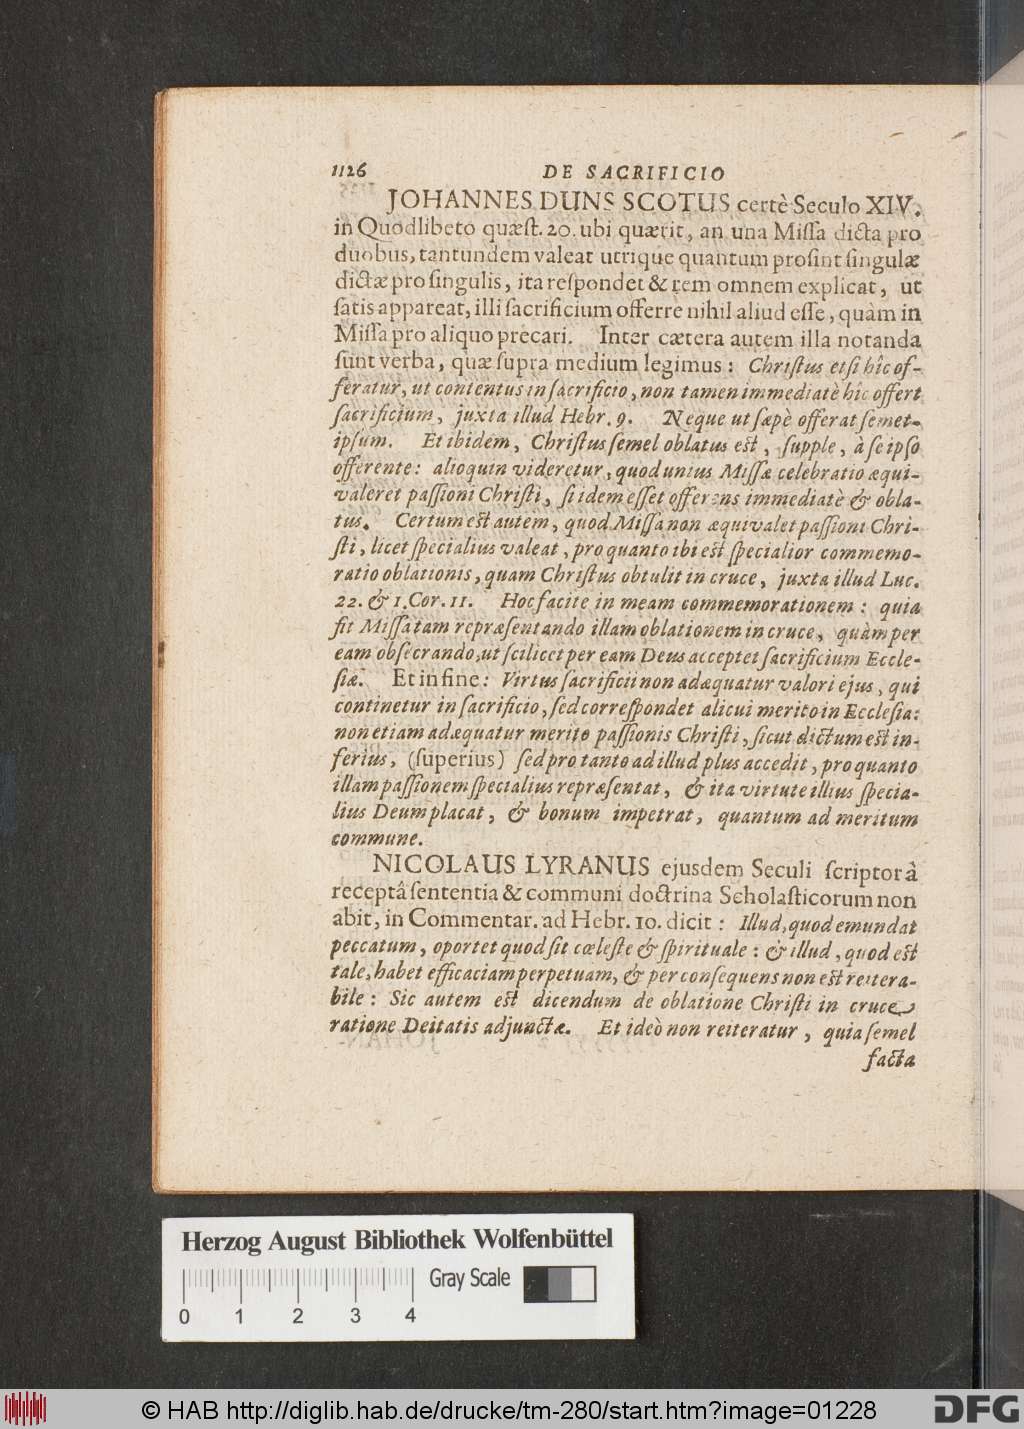 1126 DE SACRIFICIO
JOHANNES DUNS SCOTUS certè Seculo XIV.
in Quodlibeto quæſt. 20. ubi quærit, an una Miſſa dicta pro
duobus, tantundem valeat utrique quantum proſint ſingulæ
dictæ pro ſingulis, ita reſpondet & rem omnem explicat, ut
ſatis appareat, illi ſacrificium offerre nihil aliud eſſe, quàm in
Miſſa pro aliquo precari. Inter cætera autem illa notanda
ſunt verba, quæ ſupra medium legimus: Chriſtus etſi hîc of-
feratur, ut contentus in ſacrificio, non tamen immediatè hîc offert
ſacrificium, juxta illud Hebr. 9. Neque ut ſæpè offerat ſemet-
ipſum. Et ibidem, Chriſtus ſemel oblatus eſt, ſupple, à ſe ipſo
offerente: alioquin videretur, quod unius Miſſæ celebratio æqui-
valeret paſſioni Chriſti, ſi idem eſſet offerens immediatè & obla-
tus. Certum eſt autem, quod Miſſa non æquivalet paſſioni Chri-
ſti, licet ſpecialius valeat, pro quanto ibi eſt ſpecialior commemo-
ratio oblationis, quam Chriſtus obtulit in cruce, juxta illud Luc.
22. & 1. Cor. 11. Hoc facite in meam commemorationem: quia
fit Miſſa tam repræſentando illam oblationem in cruce, quàm per
eam obſecrando, ut ſcilicet per eam Deus acceptet ſacrificium Eccle-
ſiæ. Et in fine: Virtus ſacrificii non adæquatur valori ejus, qui
continetur in ſacrificio, ſed correſpondet alicui merito in Eccleſia:
non etiam adæquatur merito paſſionis Chriſti, ſicut dictum eſt in-
ferius, (ſuperius) ſed pro tanto ad illud plus accedit, pro quanto
illam paſſionem ſpecialius repræſentat, & ita virtute illius ſpecia-
lius Deum placat, & bonum impetrat, quantum ad meritum
commune.
NICOLAUS LYRANUS ejusdem Seculi ſcriptor à
receptâ ſententia & communi doctrina Scholaſticorum non
abit, in Commentar. ad Hebr. 10. dicit: Illud, quod emundat
peccatum, oportet quod ſit cœleſte & ſpirituale: & illud, quod eſt
tale, habet efficaciam perpetuam, & per conſequens non eſt reitera-
bile: Sic autem eſt dicendum de oblatione Chriſti in cruce
ratione Deitatis adjunctæ. Et ideò non reiteratur, quia ſemel
facta
Herzog August Bibliothek Wolfenbüttel
Gray Scale
0 1 2 3 4
© HAB http://diglib.hab.de/drucke/tm-280/start.htm?image=01228
DFG